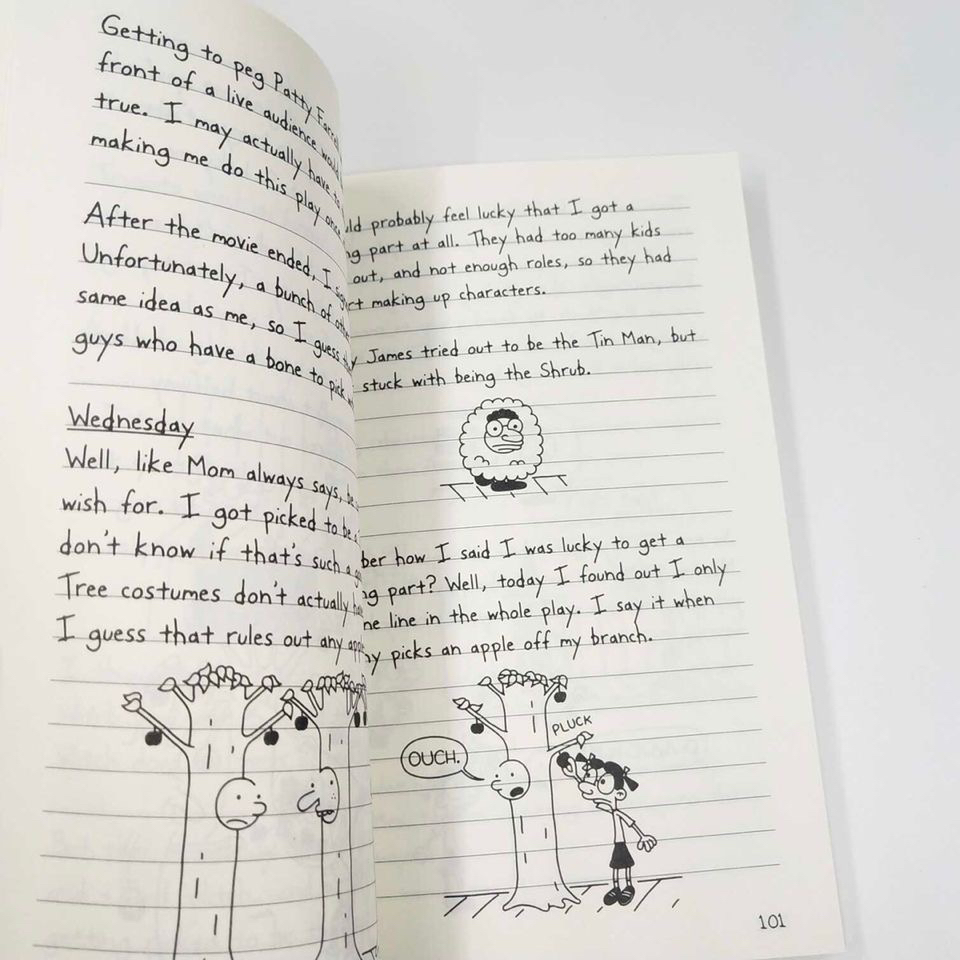 Getting to peg Patty
front of a live audience
true. I may actually have to
making me do this play
After the movie ended, I
Unfortunately, a bunch of
same idea as me, so I guess
guys who have a bone to pick
Wednesday
Well, like Mom always says,
wish for. I got picked to be
don't know if that's such a
Tree costumes don't actually
I guess that rules out any
probably feel lucky that I got a
part at all. They had too many kids
out, and not enough roles, so they had
making up characters.
James tried out to be the Tin Man, but
stuck with being the Shrub.
how I said I was lucky to get a
part? Well, today I found out I only
line in the whole play. I say it when
picks an apple off my branch.
PLUCK
OUCH.
101